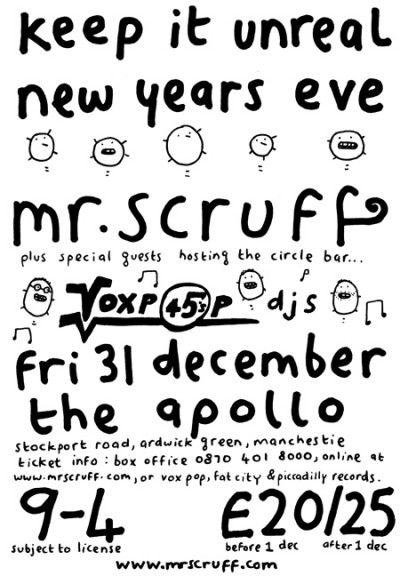 keep it unreal
new years eve
mr. scruff
plus special guests hosting the circle bar...
VOXPOP 45's djs
fri 31 december
the apollo
stockport road, ardwick green, manchestie
ticket info : box office 0870 401 8000, online at
www.mrscruff.com, or vox pop, fat city & piccadilly records.
9-4 £20/25
subject to license before 1 dec after 1 dec
www.mrscruff.com